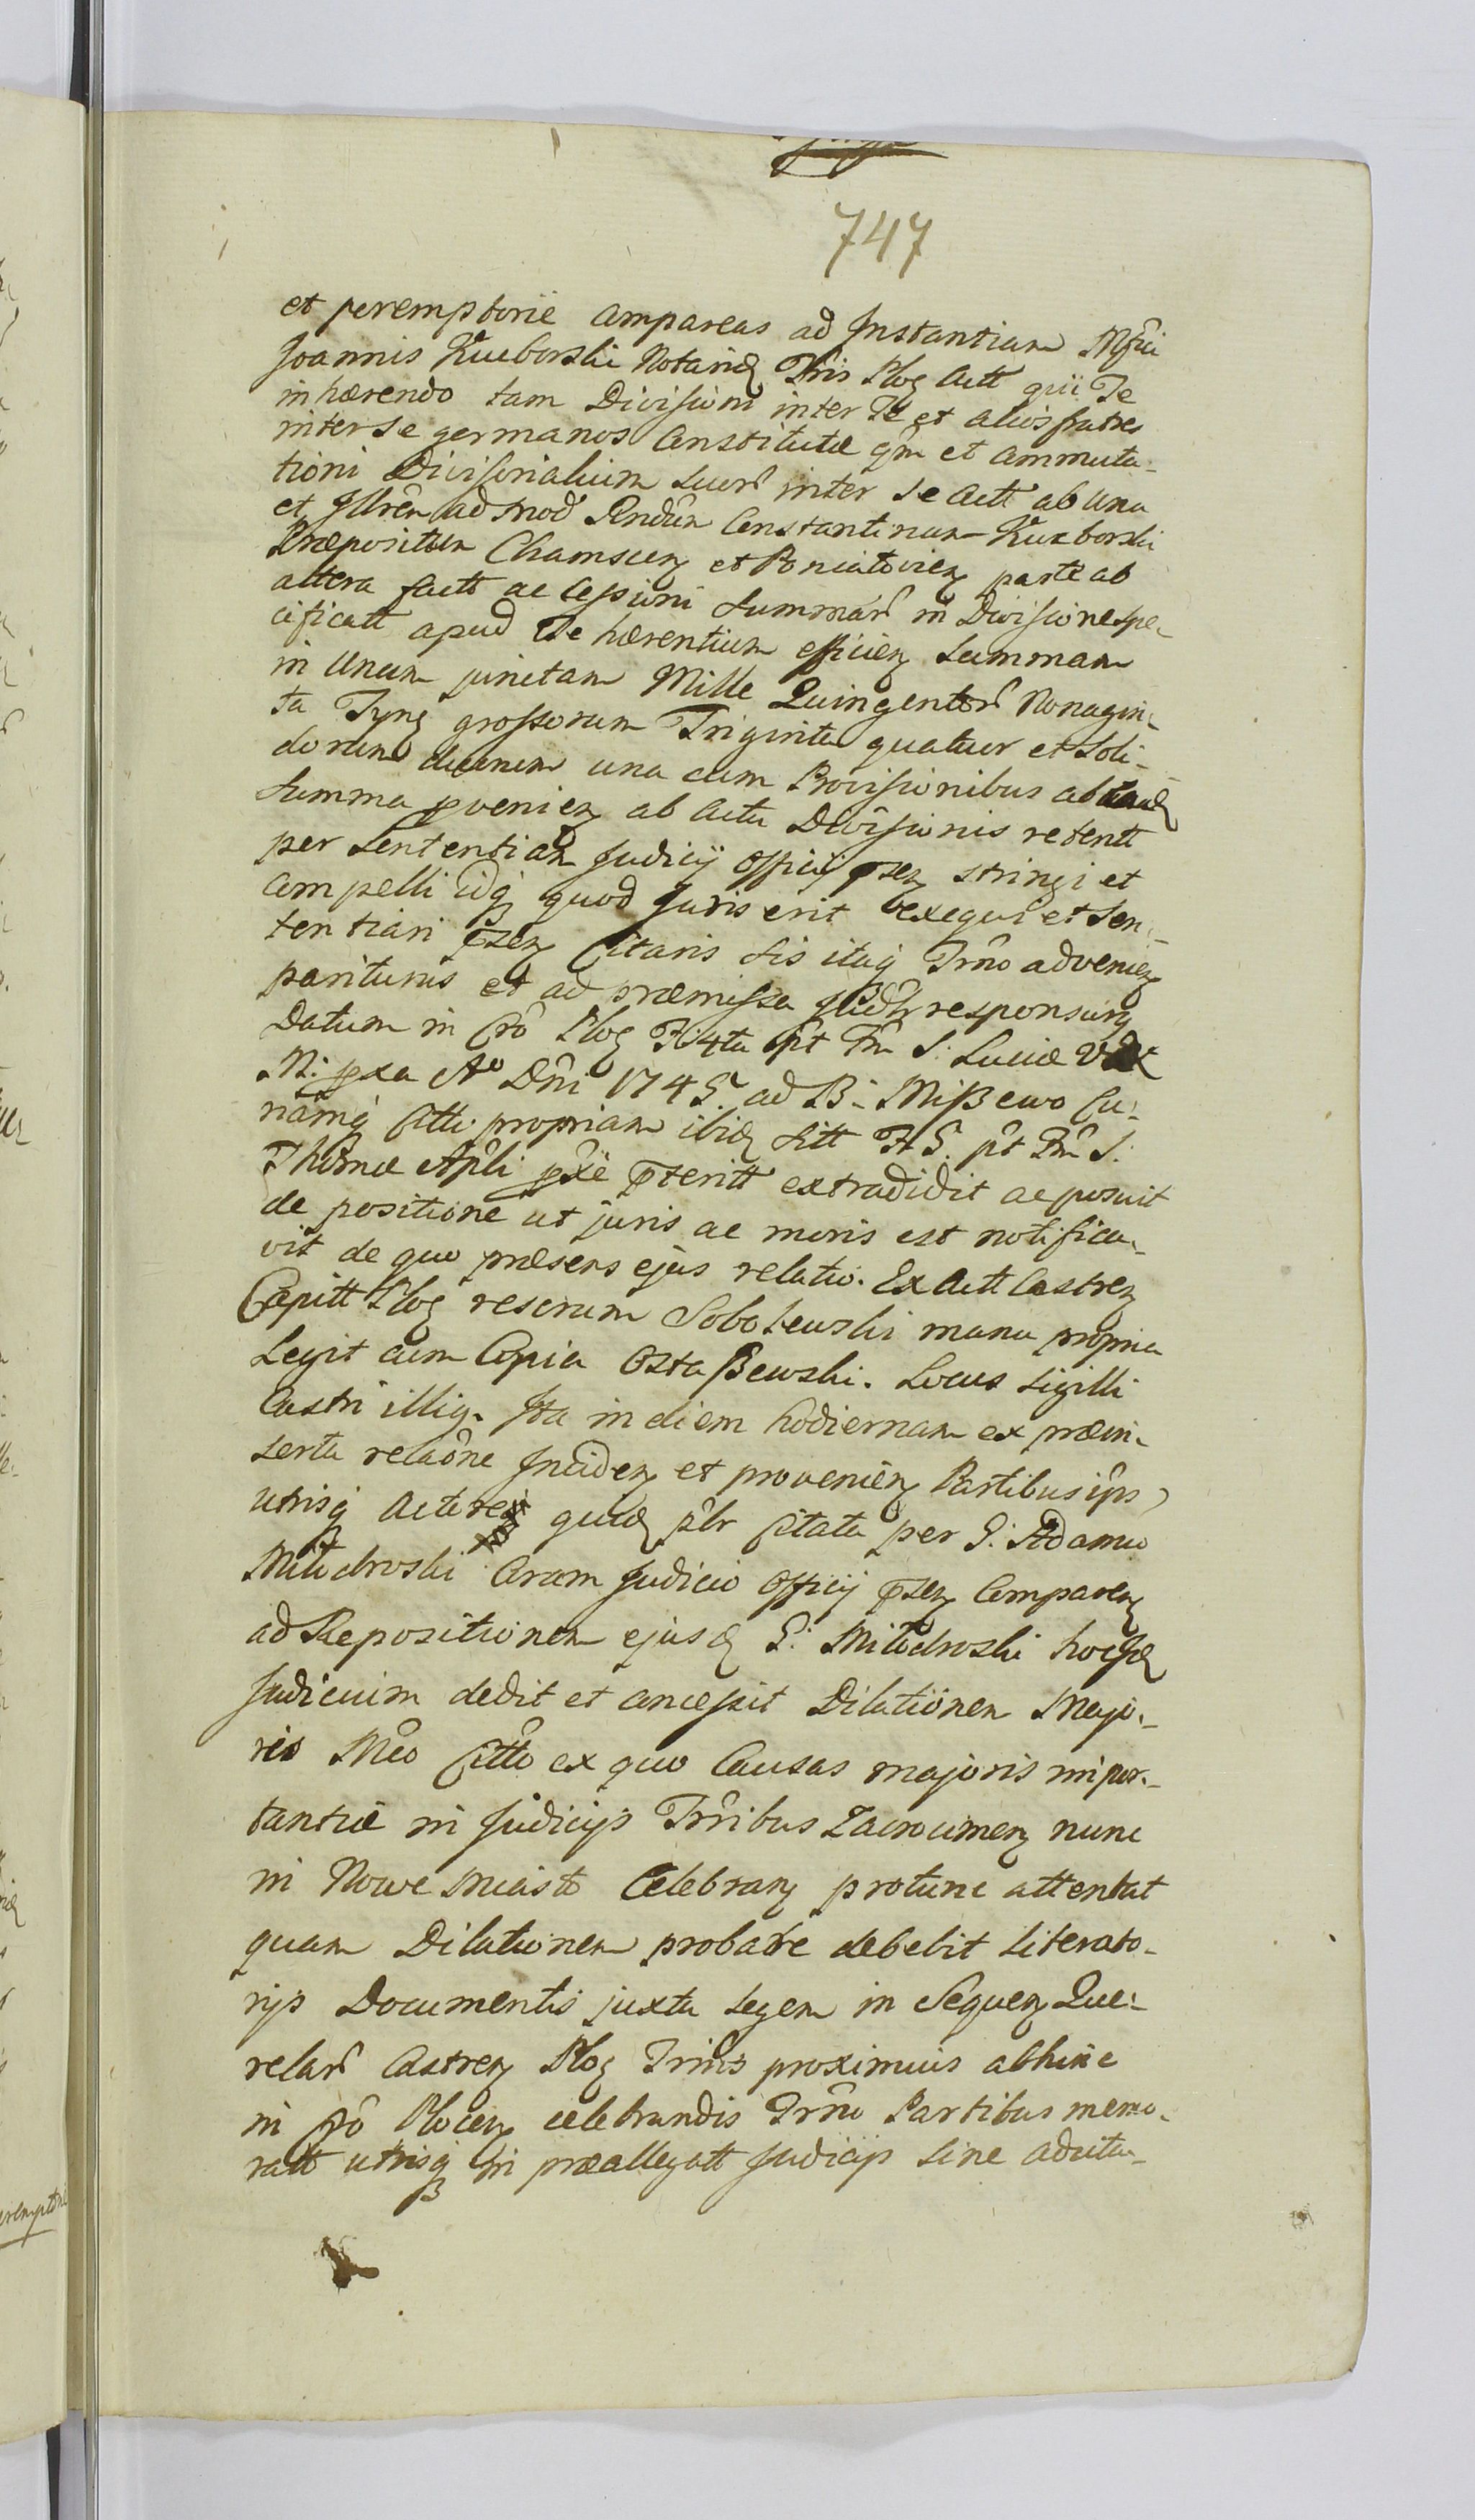 747
et peremptorie compareas ad Instantiam Mfci
Joannis Kuczborski Notarij Tris Ploc Actt qui Te
inhærendo tam Divisioni inter Te et alios fratres
inter se germanos Constitutæ qm et Commuta-
tioni Divisionalium suor inter se Actt ab una
et Illrem ad mod Rndum Constantinum Kuczborski
Præpositum Chamscen et Poniatovien parte ab
altera factt ac Cessioni Summar in Divisione spe-
cificatt apud Te hærentium efficien Summam
in Unum junctam Mille Quingentor Nonagin-
ta Tynf grossorum Triginta quatuor et Soli-
dorum duorum una cum Provisionibus ab ead
Summa pvenien ab Actu Divisionis retentt
per Sententiam Judicij Officij psen stringi et
Compelli idq quod Juris erit exequi et Sen-
tentiari psen Citaris Sis itaq Trno advenien
pariturus et ad præmissa Judlr responsurus
Datum in Cro Ploc F. 4ta pt Fm S. Luciæ V et
M. pxa Ao Dni 1745. ad B. Miszewo Cu-
namq Cttt propriam ibid Sitt F. S. pt Fm S.
Thomæ Apli pxe pteritt extradidit ac posuit
de positione ut juris ac moris est notifica-
vit de quo præsens ejus relatio. Ex Actt Castren
Capitt Ploc rescrum Sobolewski manu propria
Legit cum Copia Ostaszewski. Locus Sigilli
Castri illig. Ita in diem hodiernam ex præin-
serta relaone Inciden et provenien Partibus ips
utrisq Actorea quid plr Citata per G. Adamu
Milodroski Coram Judicio Officij psen Comparen
ad Repositionem ejusd G. Milodroski hocce
Judicium dedit et concessit Dilationem Majo-
ris Mco Citto ex quo Causas majoris impor-
tantiæ in Judicijs Trribus Zacrocimen nunc
in Nowe Miasto Celebran protunc attentat
quam Dilationem probare debebit Literato-
rijs Documentis juxta legem in Sequen Que-
relar Castren Ploc Trmis proximius abhinc
in Cro Plocen celebrandis Trno Partibus memo-
ratt utrisq in præallegatt Judicijs sine adcita-